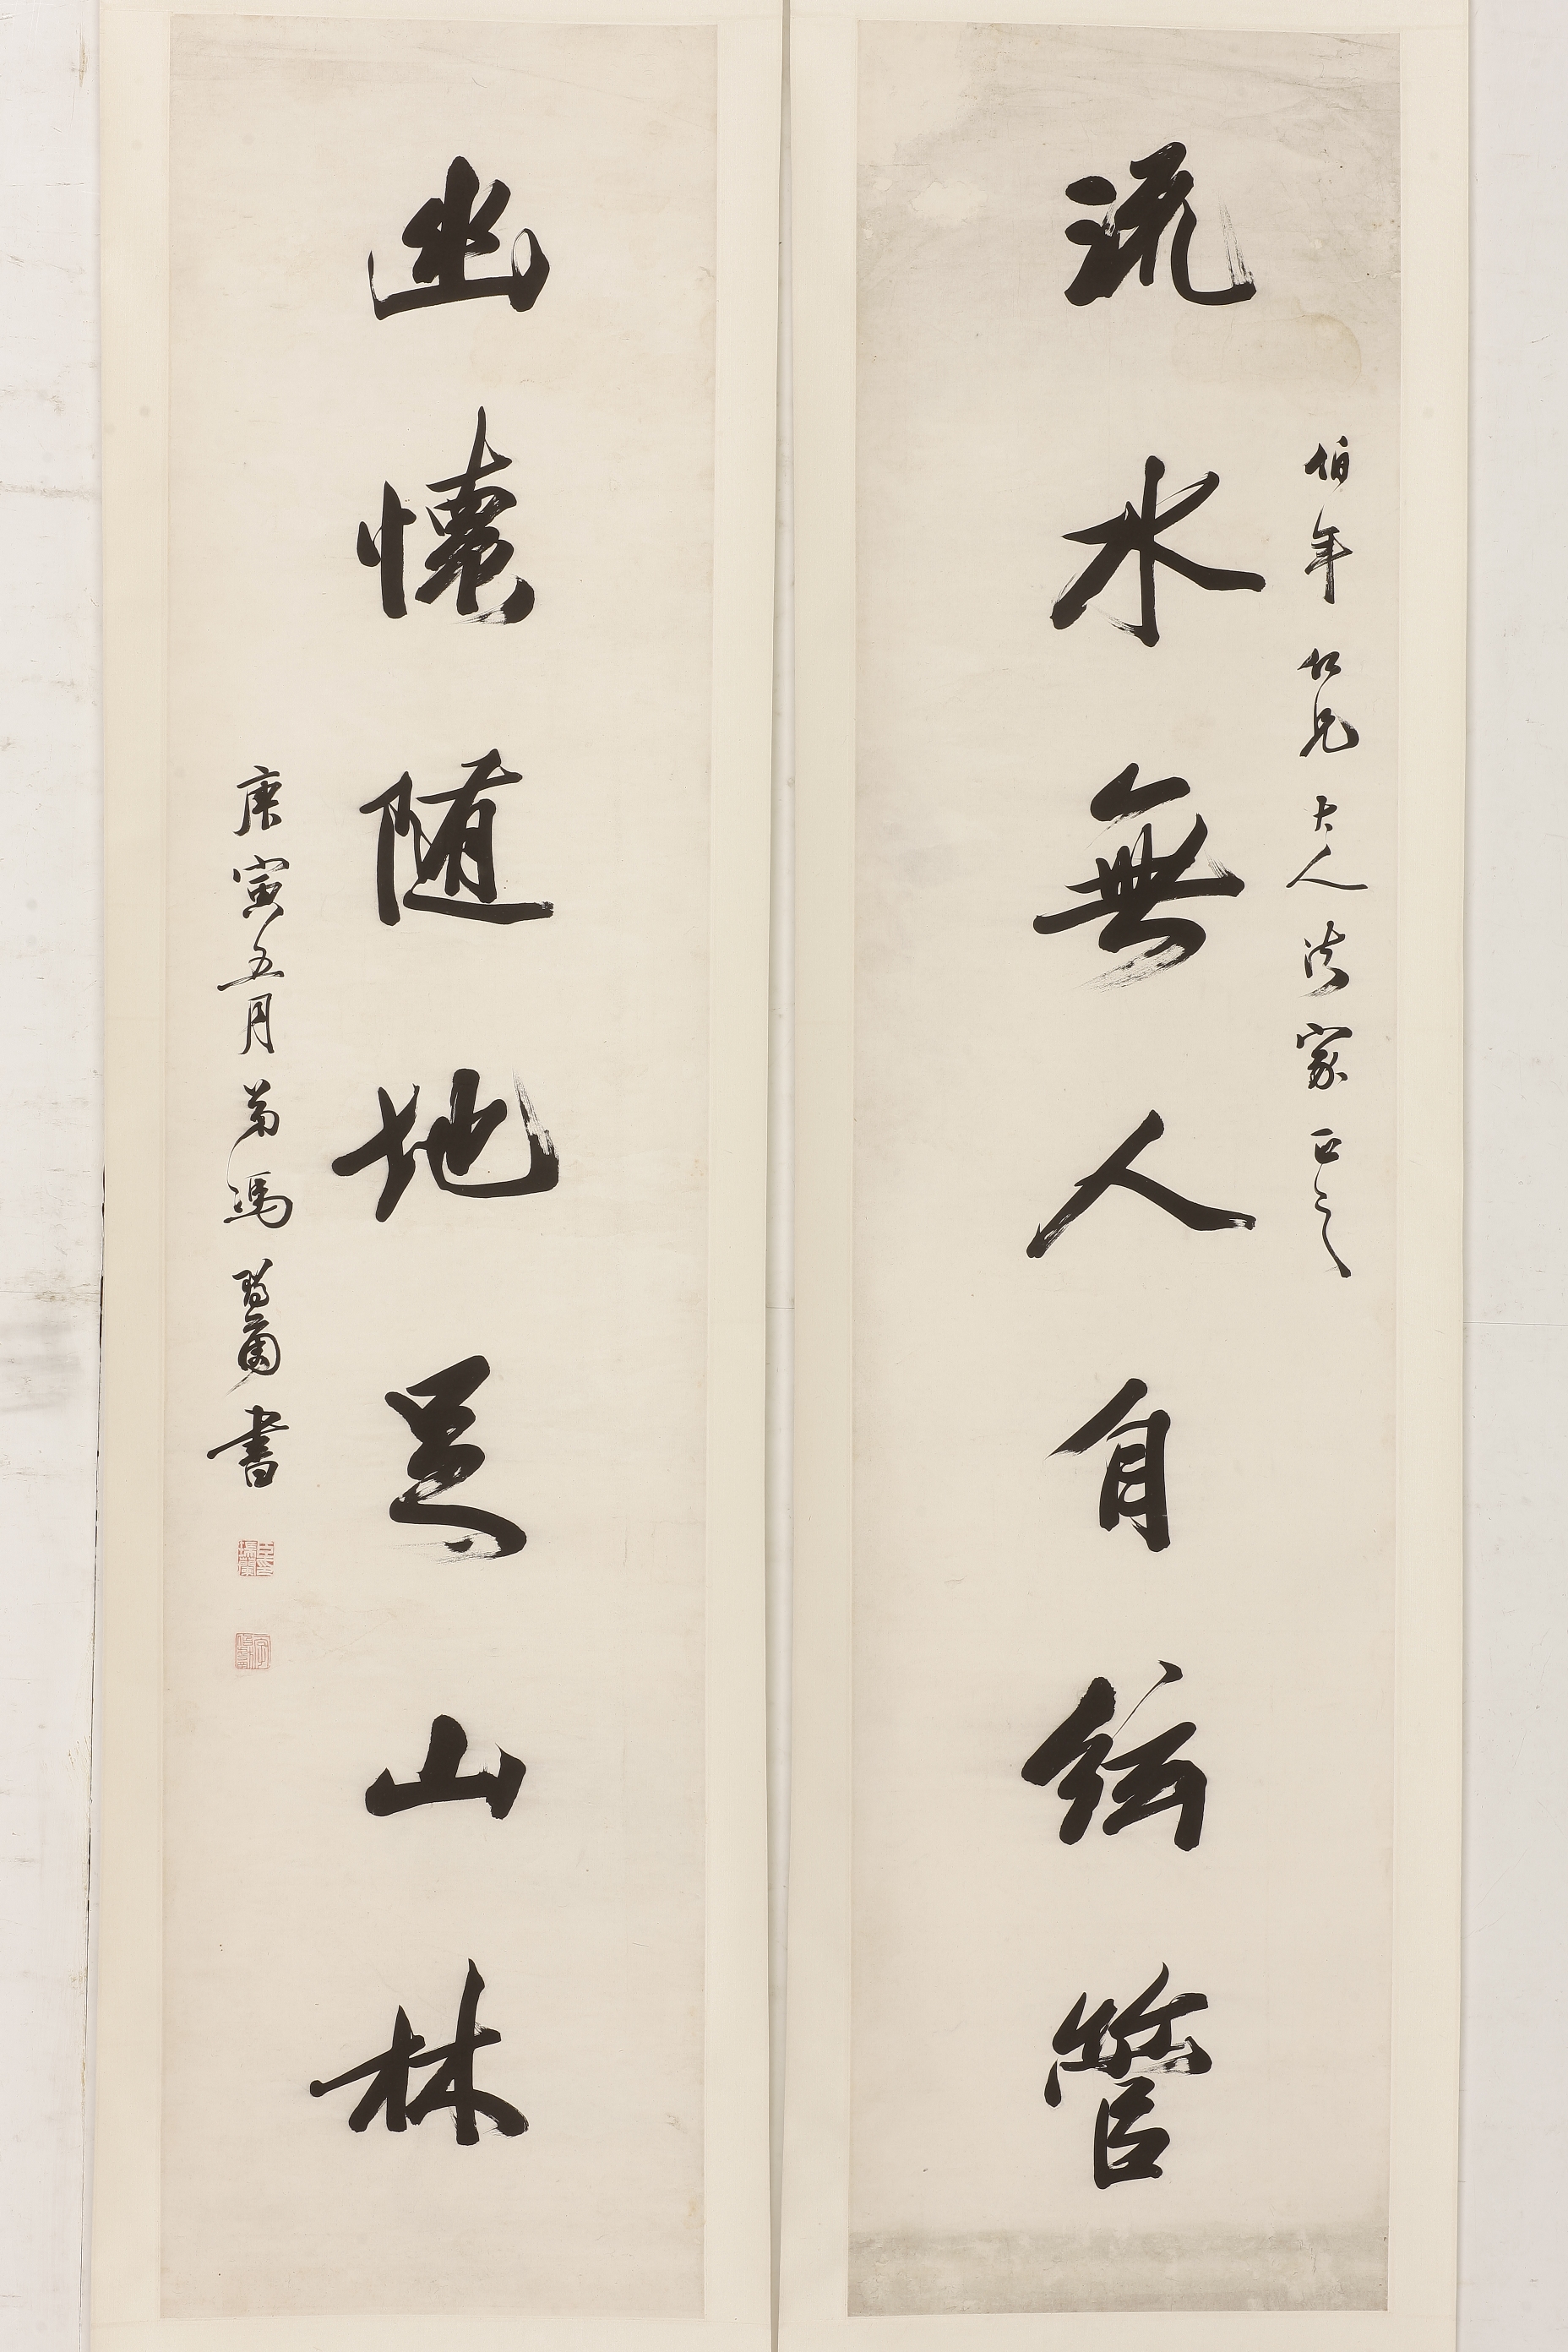 伯年仁兄大人法家正之
流水無人自絃管
幽懷随地足山林
庚寅五月弟馮瑞蘭書